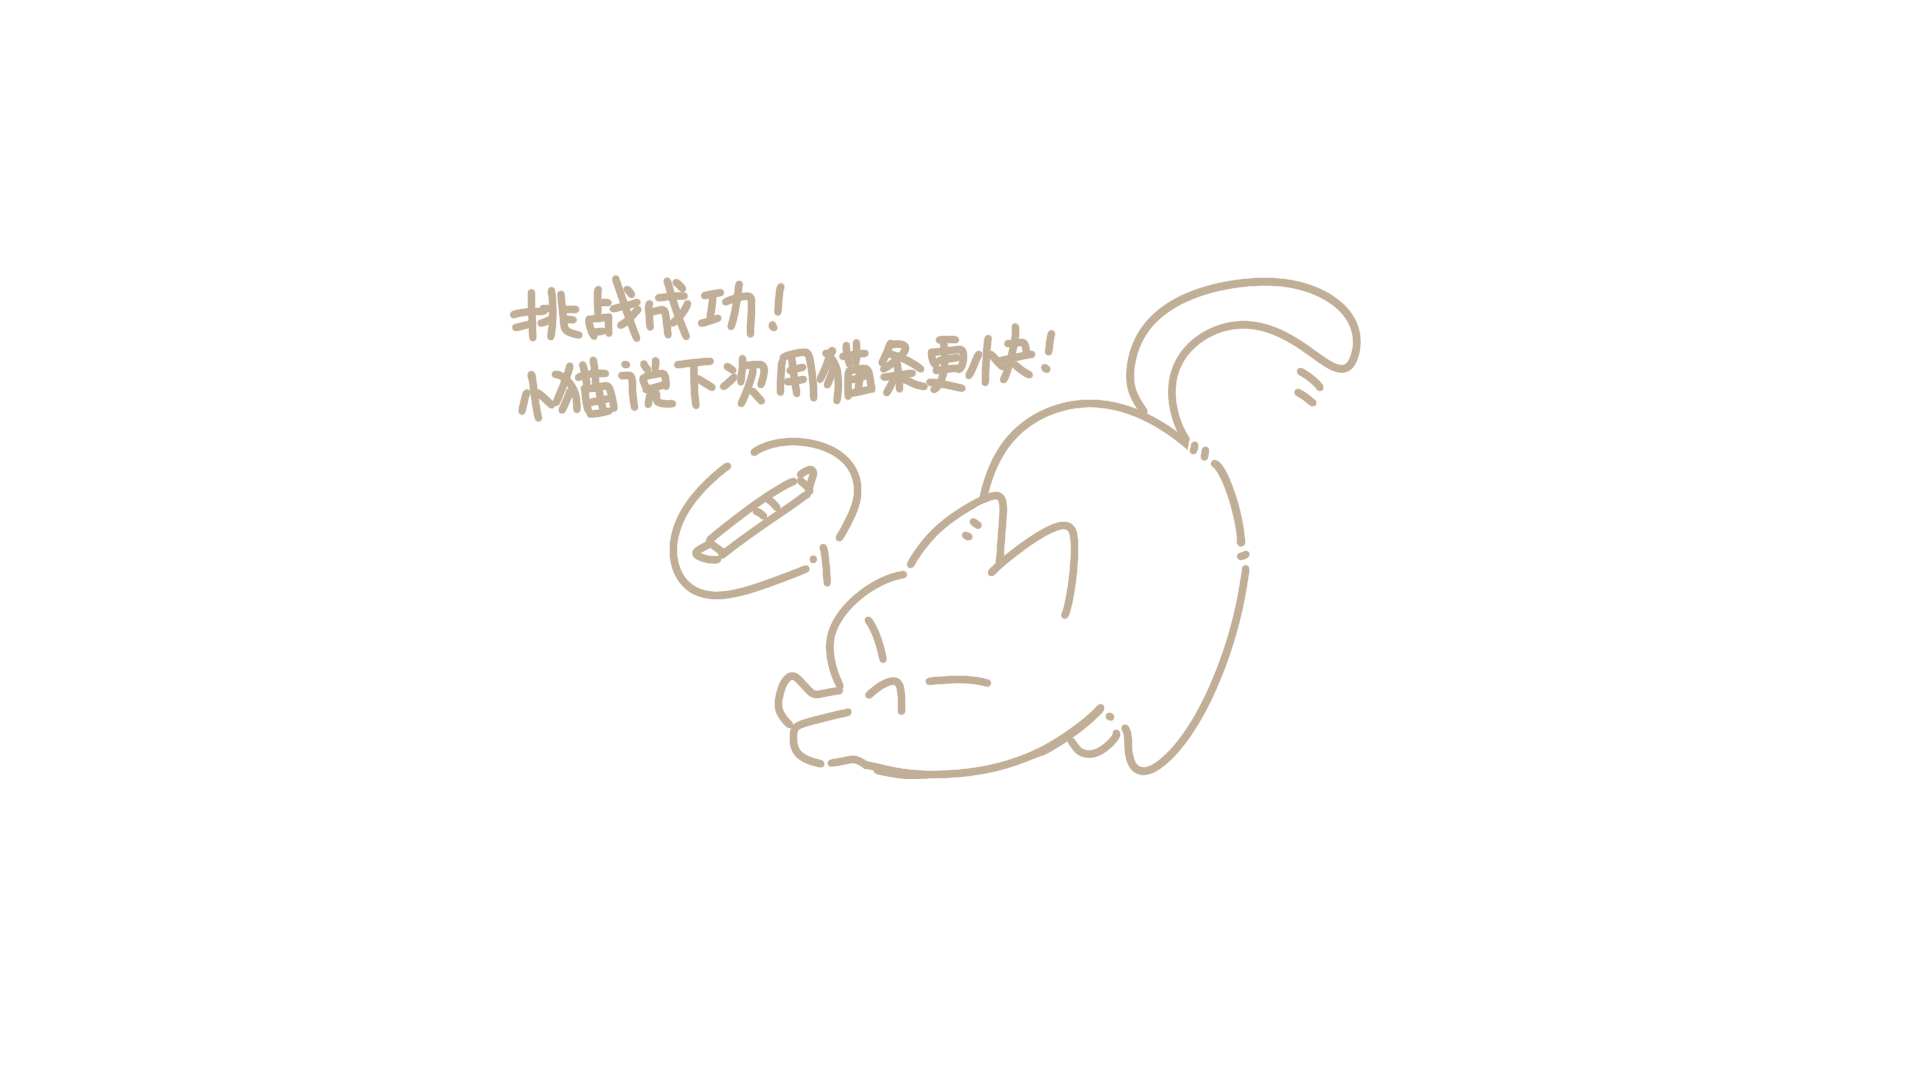 挑战成功！
小猫说下次用猫条更快！